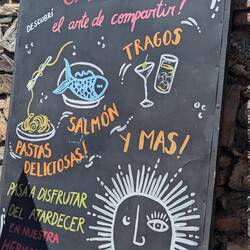 DESCUBRÍ
el arte de compartir!
TRAGOS
SALMÓN
PASTAS
DELICIOSAS!
Y MAS!
PASA A DISFRUTAR
DEL ATARDECER
EN NUESTRA